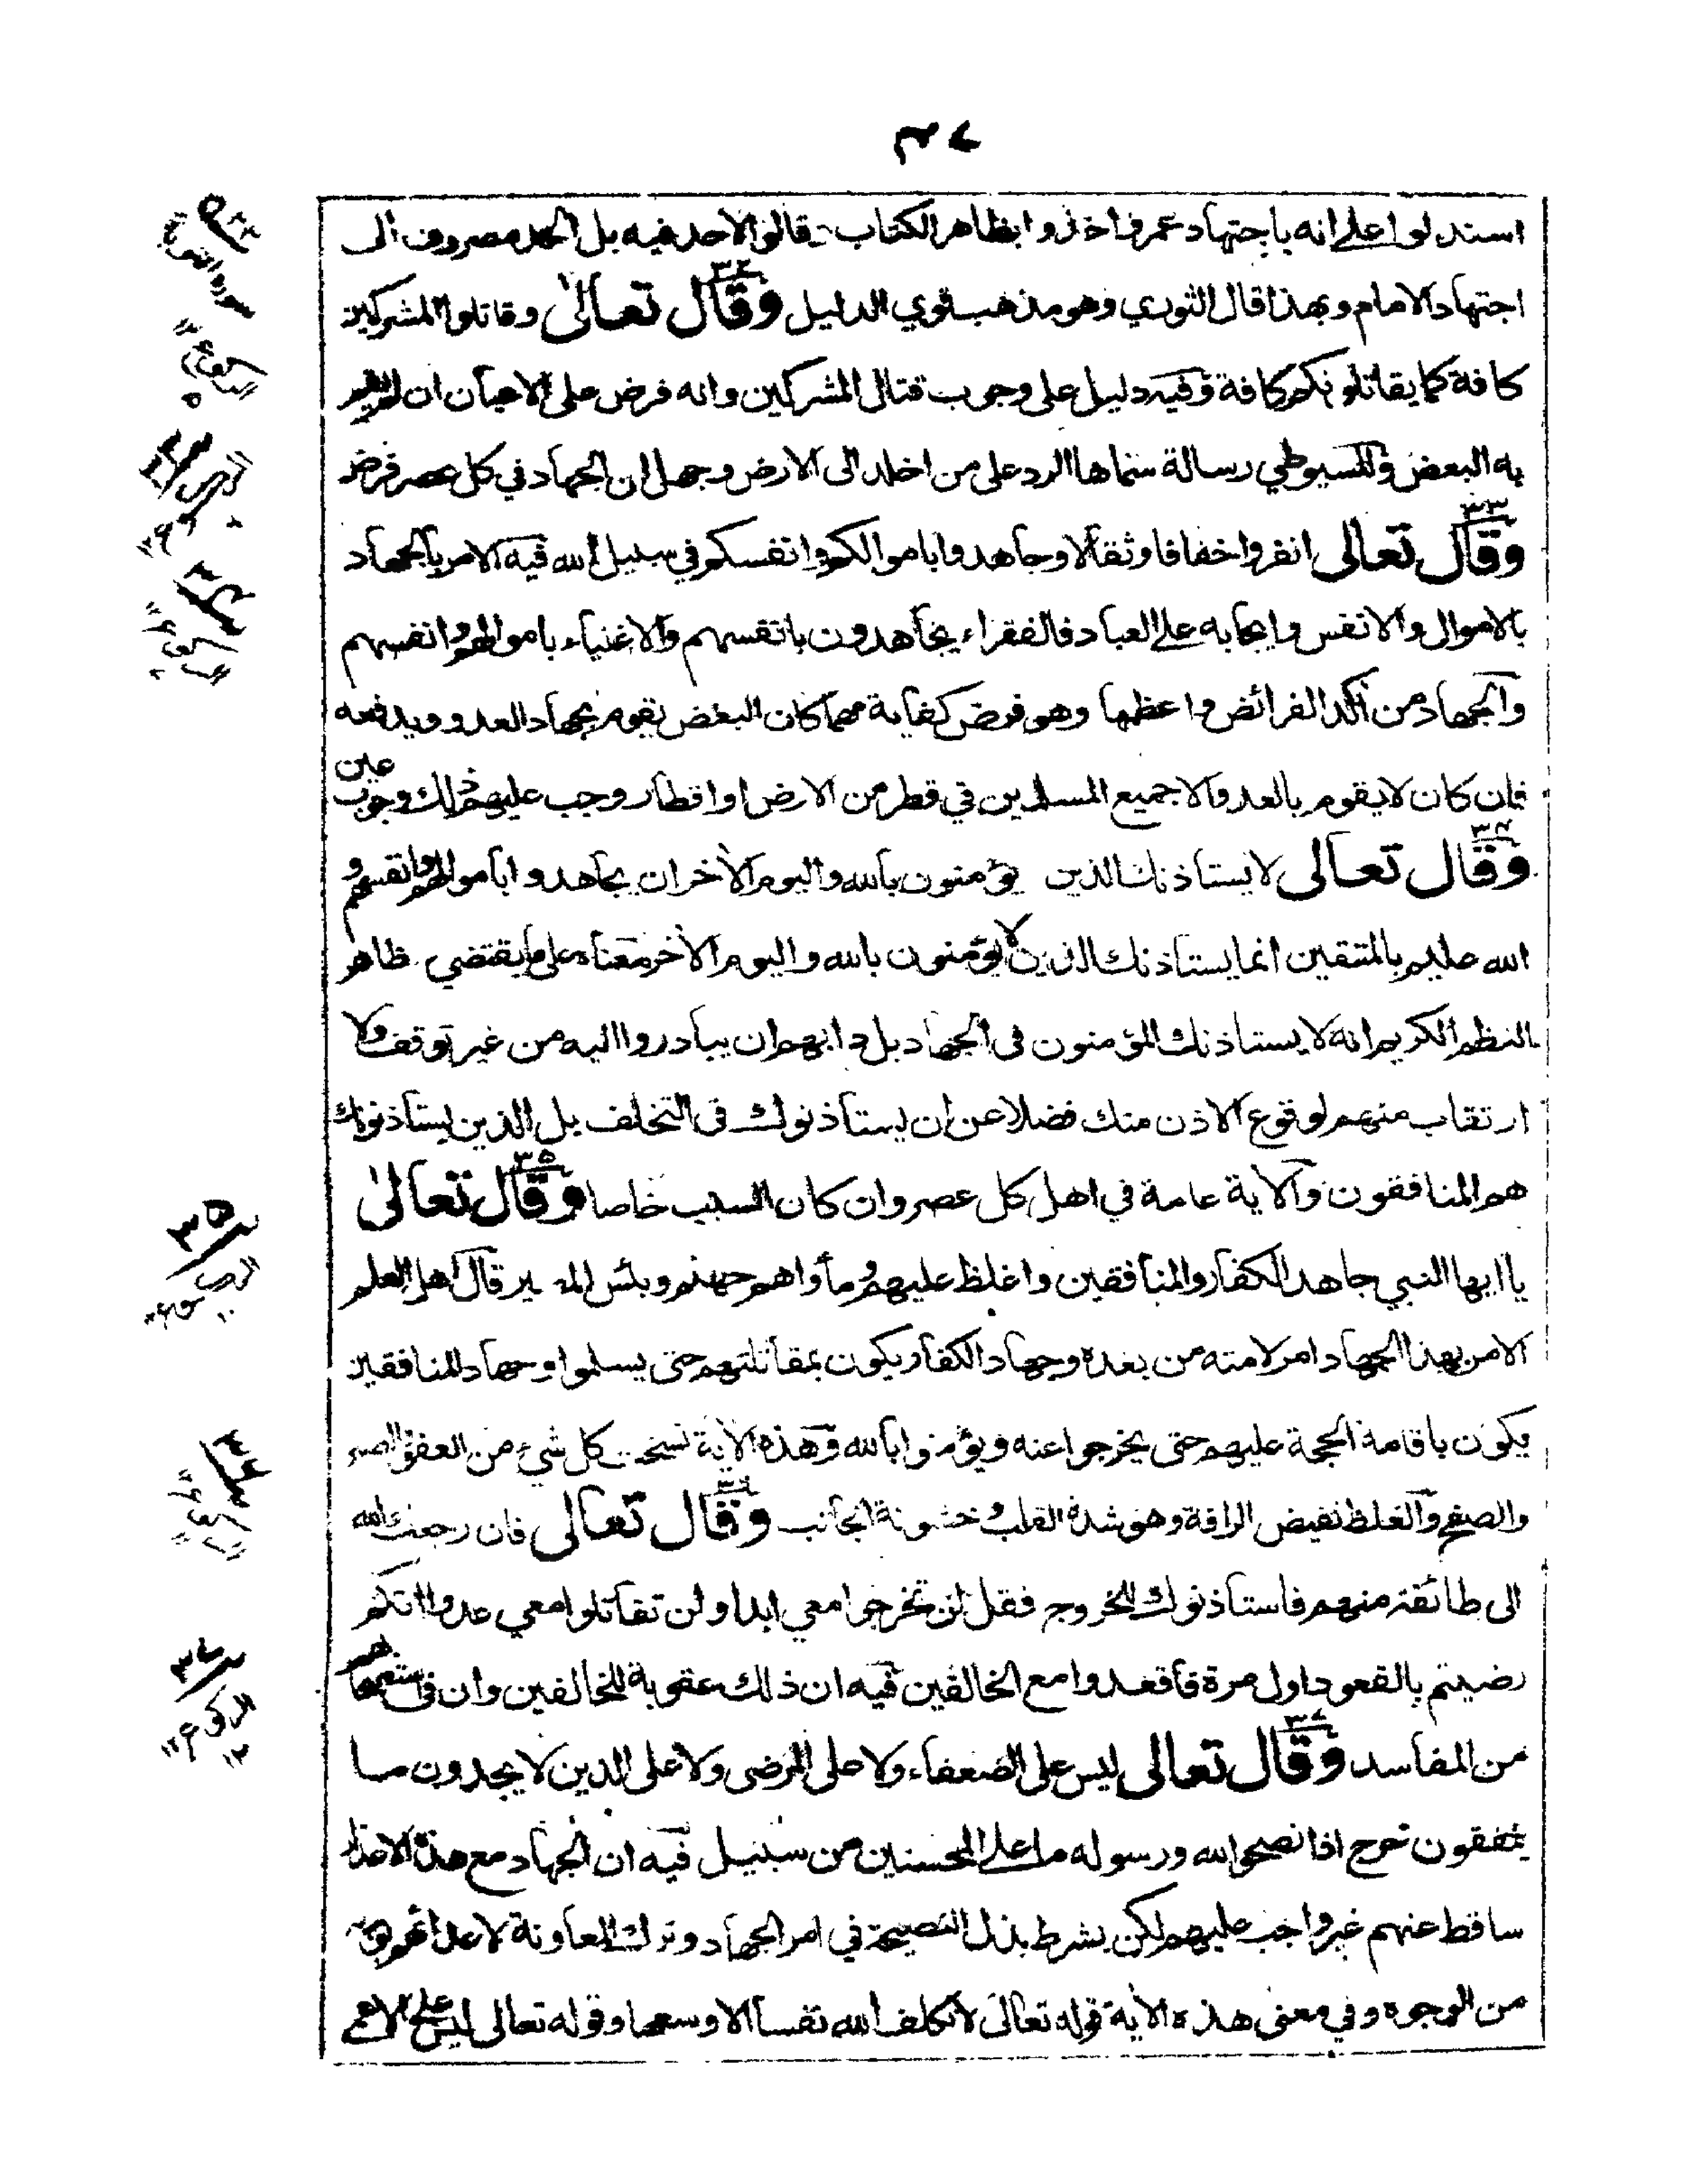 ٣٧
استدلوا على انه باجتهاد عمر فاخذوا بظاهر الكتاب وقالوا لاحد فيه بل الحد مصروف الى
اجتهاد الامام وبهذا قال الثوري وهو مذهب قوي الدليل وقال تعالى وقاتلوا المشركين
٣٢
كافة كما يقاتلونكم كافة وفيه دليل على وجوب قتال المشركين وانه فرض على الاعيان ان لم يقم
به البعض وللسيوطي رسالة سماها الرد على من اخلد الى الارض وجهل ان الجهاد في كل عصر فرض
٣٣
وقال تعالى انفروا خفافا وثقالا وجاهدوا باموالكم وانفسكم في سبيل الله فيه الامر بالجهاد
بالاموال والانفس وايجابه على العباد فالفقراء يجاهدون بانفسهم والاغنياء باموالهم وانفسهم
والجهاد من آكد الفرائض واعظمها وهو فرض كفاية مهما كان البعض يقوم بجهاد العدو ويدفعه
فان كان لا يقوم بالعدو الا جميع المسلمين في قطر من الارض او اقطار وجب عليهم ذلك وجوب عين
٣٤
وقال تعالى لا يستاذنك الذين يؤمنون بالله واليوم الآخر ان يجاهدوا باموالهم وانفسهم و
الله عليم بالمتقين انما يستاذنك الذين لا يؤمنون بالله واليوم الآخر معناه على ما يقتضي ظاهر
النظم الكريم انه لا يستاذنك المؤمنون فى الجهاد بل دابهم ان يبادروا اليه من غير توقف ولا
ارتقاب منهم لوقوع الاذن منك فضلا عن ان يستاذنوك فى التخلف بل الذين يستاذنونك
هم المنافقون والآية عامة في اهل كل عصر وان كان السبب خاصا وقال تعالىٰ
٣٥
يا ايها النبي جاهد الكفار والمنافقين واغلظ عليهم وماواهم جهنم وبئس المصير قال اهل العلم
الامر بهذا الجهاد امر لامته من بعده وجهاد الكفار يكون بمقاتلتهم حتى يسلموا وجهاد المنافقين
يكون باقامة الحجة عليهم حتى يخرجوا عنه ويؤمنوا بالله وهذه الآية نسخت كل شيء من العفو والصبر
والصفح والغلظ نقيض الرافة وهو شدة القلب وخشونة الجانب وقال تعالى فان رجعك الله
٣٦
الى طائفة منهم فاستاذنوك للخروج فقل لن تخرجوا معي ابدا ولن تقاتلوا معي عدوا انكم
رضيتم بالقعود اول مرة فاقعدوا مع الخالفين فيه ان ذلك عقوبة للخالفين وان فى
من المفاسد وقال تعالى ليس على الضعفاء ولا على المرضى ولا على الذين لا يجدون ما
٣٧
ينفقون حرج اذا نصحوا لله ورسوله ما على المحسنين من سبيل فيه ان الجهاد مع هذه الاعذار
ساقط عنهم غير واجب عليهم لكن بشرط بذل النصيحة في امر الجهاد وترك المعاونة لاعدائهم بوجه
من الوجوه وفي معنى هذه الآية قوله تعالى لا نكلف الله نفسا الا وسعها وقوله تعالى ليس على الاعمى
٣٥
٣٦
٣٧